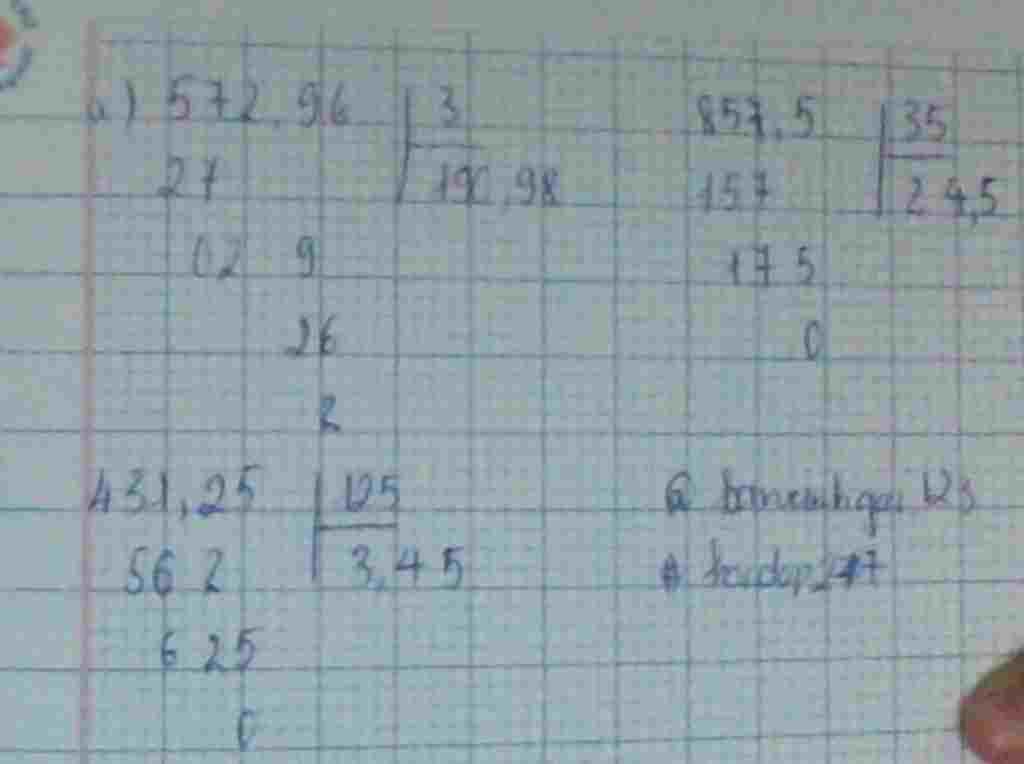 a) 572,96 3
27 190,98
02 9
26
2
857,5 35
157 24,5
175
0
431,25 125
562 3,45
625
0